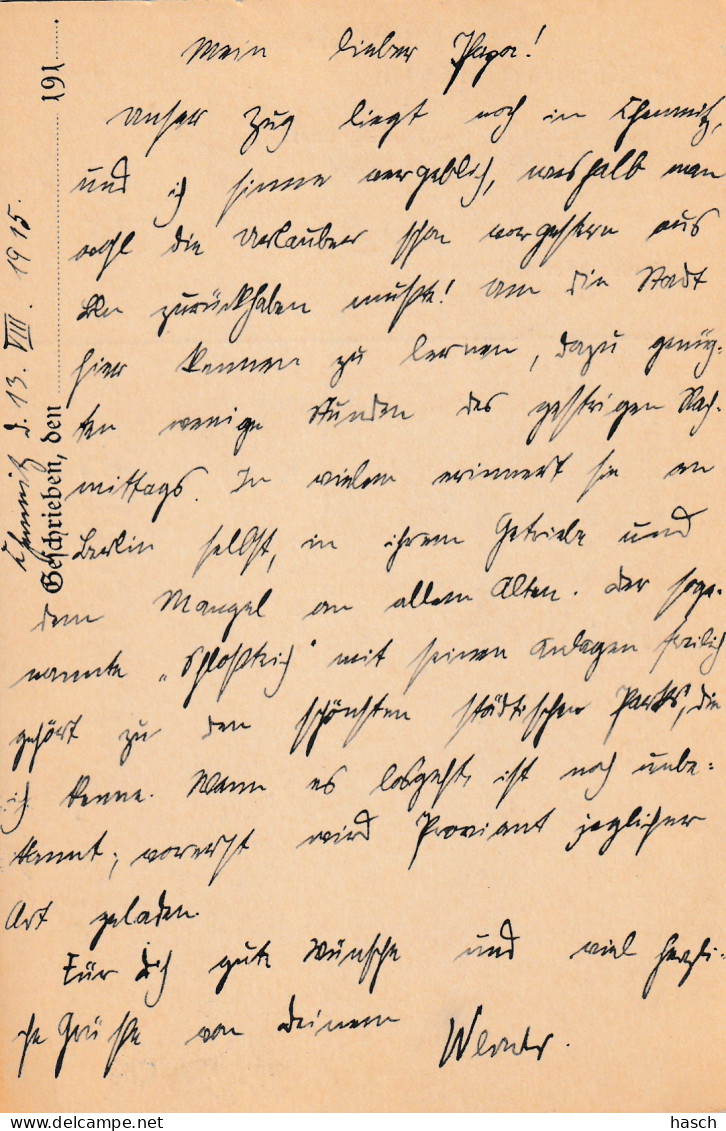 Geschrieben, den 191
Chemnitz d. 13. VIII. 1915.
Mein lieber Papa!
Unser Zug liegt noch in Chemnitz,
und ich sinne vergeblich, weshalb man
wohl die Urlauber schon vorgestern aus
Bln zurückhaben mußte! Um die Stadt
hier kennen zu lernen, dazu genüg-
ten wenige Stunden des gestrigen Nach-
mittags. In vielem erinnert sie an
Berlin selbst, in ihrem Getriebe und
dem Mangel an allem Alten. Der soge-
nannte „Schloßteich" mit seinen Anlagen freilich
gehört zu den schönsten städtischen Parks, die
ich kenne. Wann es losgeht, ist noch unbe-
kannt; vorerst wird Proviant jeglicher
Art geladen.
Für Dich gute Wünsche und viel herzli-
che Grüße von Deinem Werner.
hasch